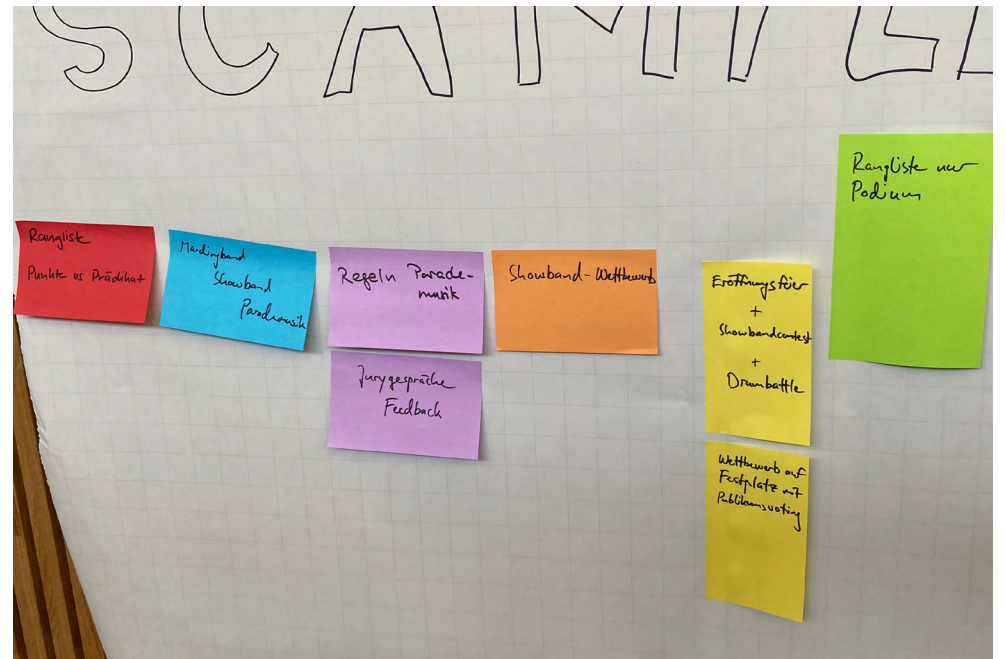 SCAMPE
Rangliste
Punkte vs Prädikat
Marchingband
Showband
Parademusik
Regeln Parade-
musik
Jurygespräche
Feedback
Showband-Wettbewerb
Eröffnungsfeier
+
Showbandcontest
+
Drumbattle
Wettbewerb auf
Festplatz mit
Publikumsvoting
Rangliste nur
Podium